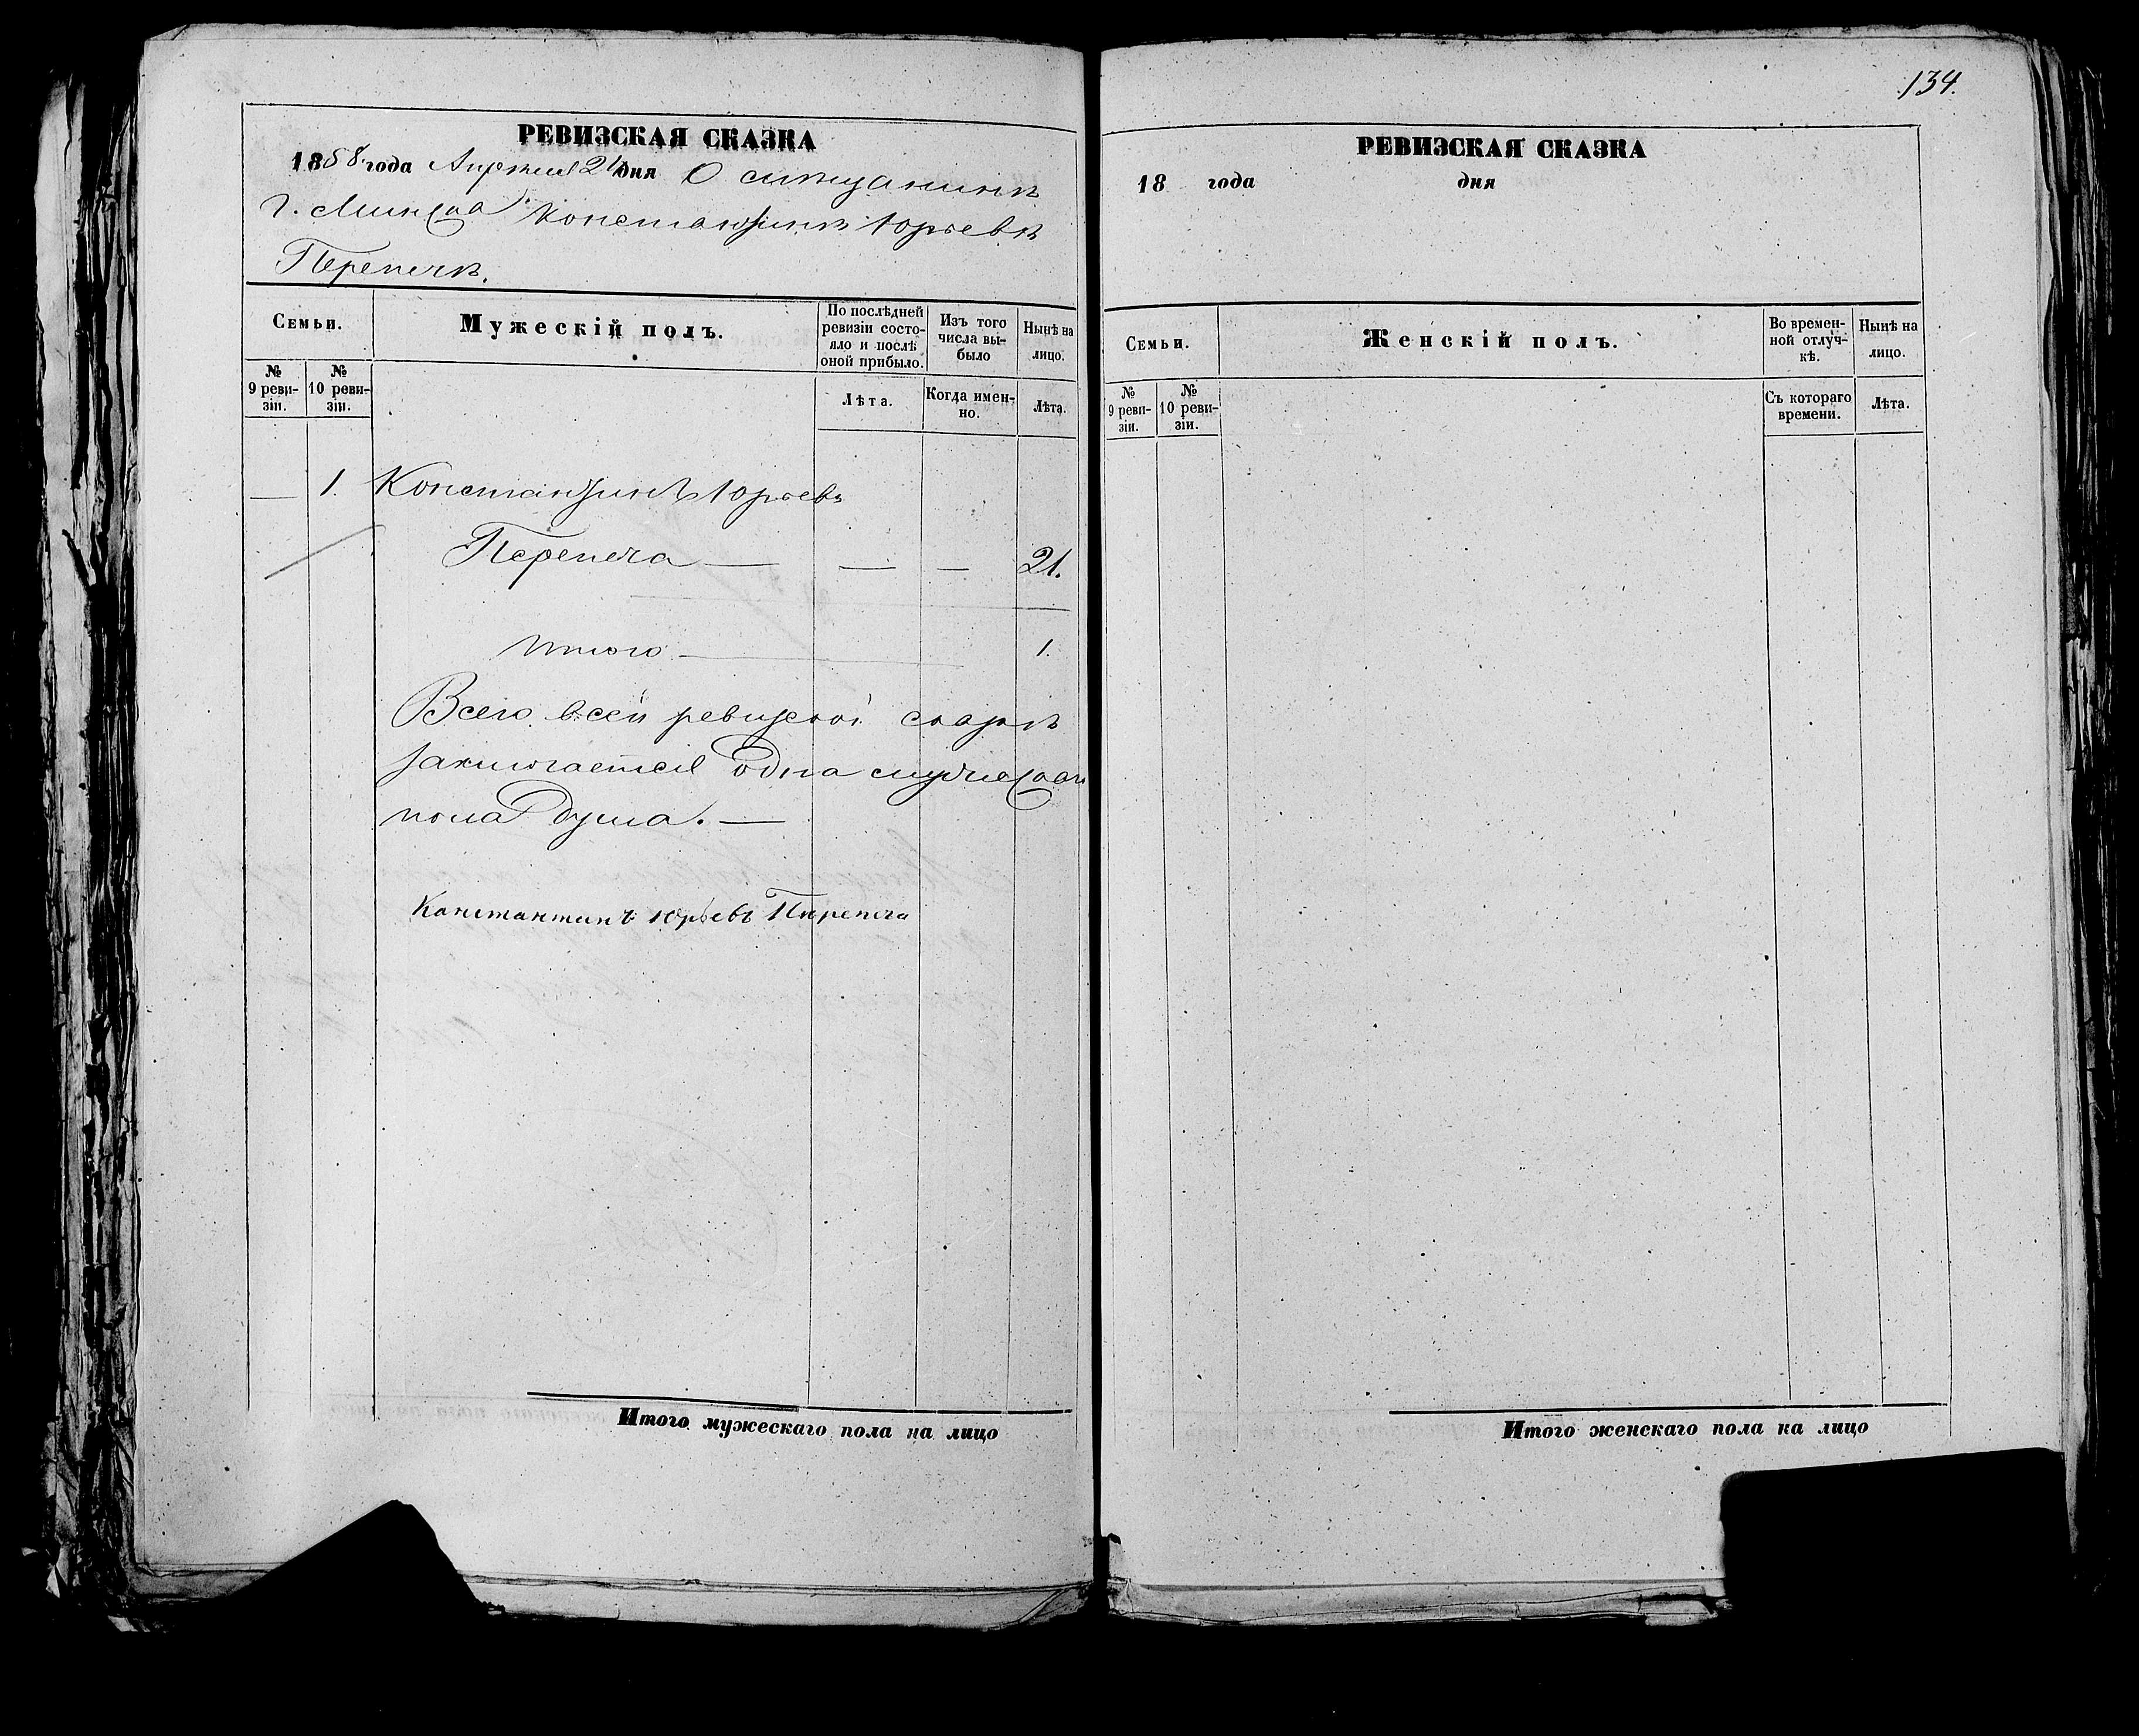 РЕВИЗСКАЯ СКАЗКА
1858 года Апреля 24 дня О мѣщанинѣ
г. Минска Константинѣ Юрьевѣ
Перепечѣ.
Семьи.
Мужескій полъ.
По послѣдней ревизіи состояло и послѣ оной прибыло.
Изъ того числа выбыло
Нынѣ на лицо.
№ 9 ревизіи.
№ 10 ревизіи.
Лѣта.
Когда именно.
Лѣта.
— 1. Константинъ Юрьевъ
Перепеча — — — 21.
Итого — 1.
Всего в сей ревизской сказкѣ
заключается одна мужеская
пола душа. —
Константинъ Юрьевъ Перепеча
Итого мужескаго пола на лицо
134.
РЕВИЗСКАЯ СКАЗКА
18 года дня
Семьи.
Женскій полъ.
Во временной отлучкѣ.
Нынѣ на лицо.
№ 9 ревизіи.
№ 10 ревизіи.
Съ котораго времени.
Лѣта.
Итого женскаго пола на лицо